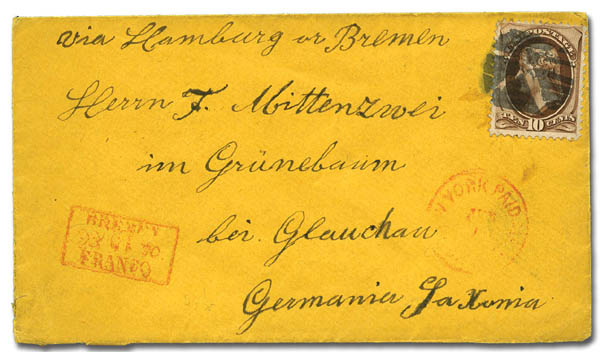 via Hamburg or Bremen
U.S. POSTAGE
TEN 10 CENTS
Herrn F. Mittenzwei
im Grünebaum
bei Glauchau
Germania Saxonia
YORK PAID
BREMEN
70
FRANCO